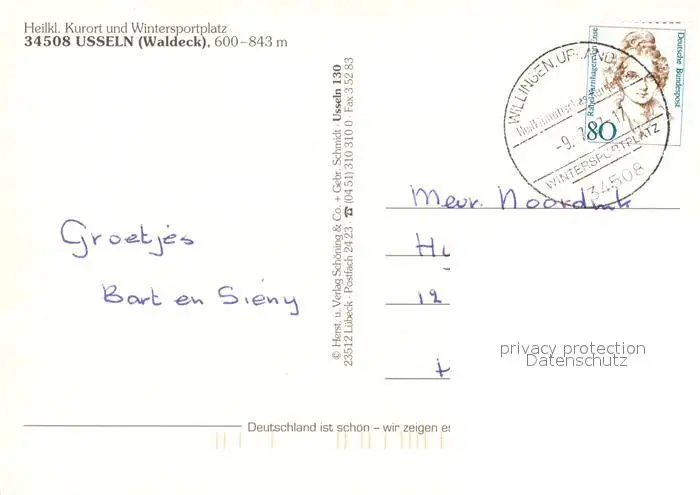 Heilkl. Kurort und Wintersportplatz
34508 USSELN (Waldeck), 600–843 m
Groetjes
Bart en Siény
© Herst. u. Verlag Schöning & Co. + Gebr. Schmidt · Usseln 130
23512 Lübeck · Postfach 24 23 · ☎ (04 51) 310 310 0 · Fax 3 52 83
WILLINGEN, UPLAND
-9.
-17
WINTERSPORTPLATZ
34508
80
Rahel Varnhagen von Ense
Deutsche Bundespost
Mevr.
12
privacy protection
Datenschutz
Deutschland ist schön – wir zeigen es